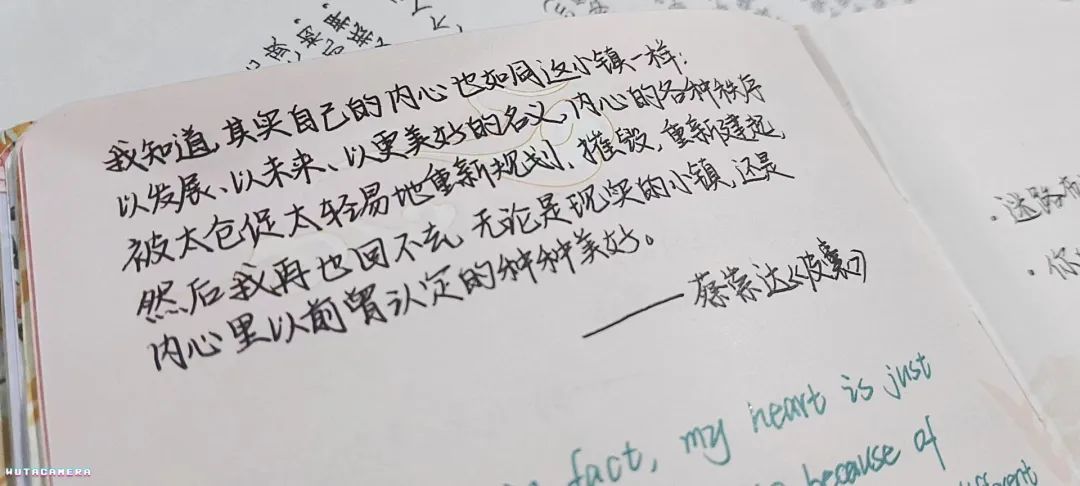 我知道,其实自己的内心也如同这小镇一样:
以发展、以未来、以更美好的名义,内心的各种秩序
被太仓促太轻易地重新规划、摧毁,重新建起,
然后我再也回不去,无论是现实的小镇,还是
内心里以前曾认定的种种美好。
——蔡崇达《皮囊》
fact, my heart is just
because of
different
WUTACAMERA